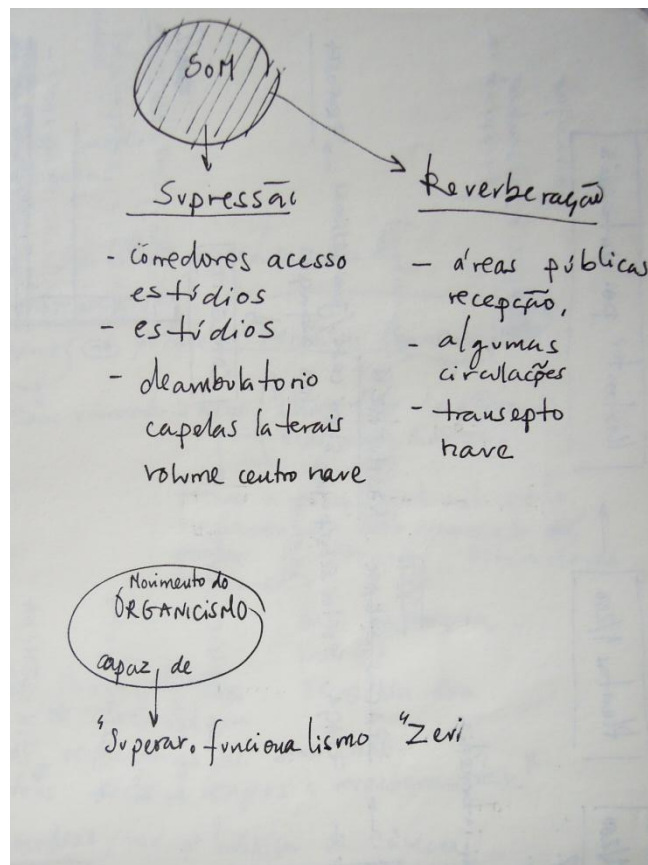 SOM
Supressão
- corredores acesso
estúdios
- estúdios
- deambulatorio
capelas laterais
volume centro nave
Reverberação
- áreas públicas
recepção,
- algumas
circulações
- transepto
nave
Movimento do
ORGANICISMO
capaz de
"Superar funcionalismo" Zevi